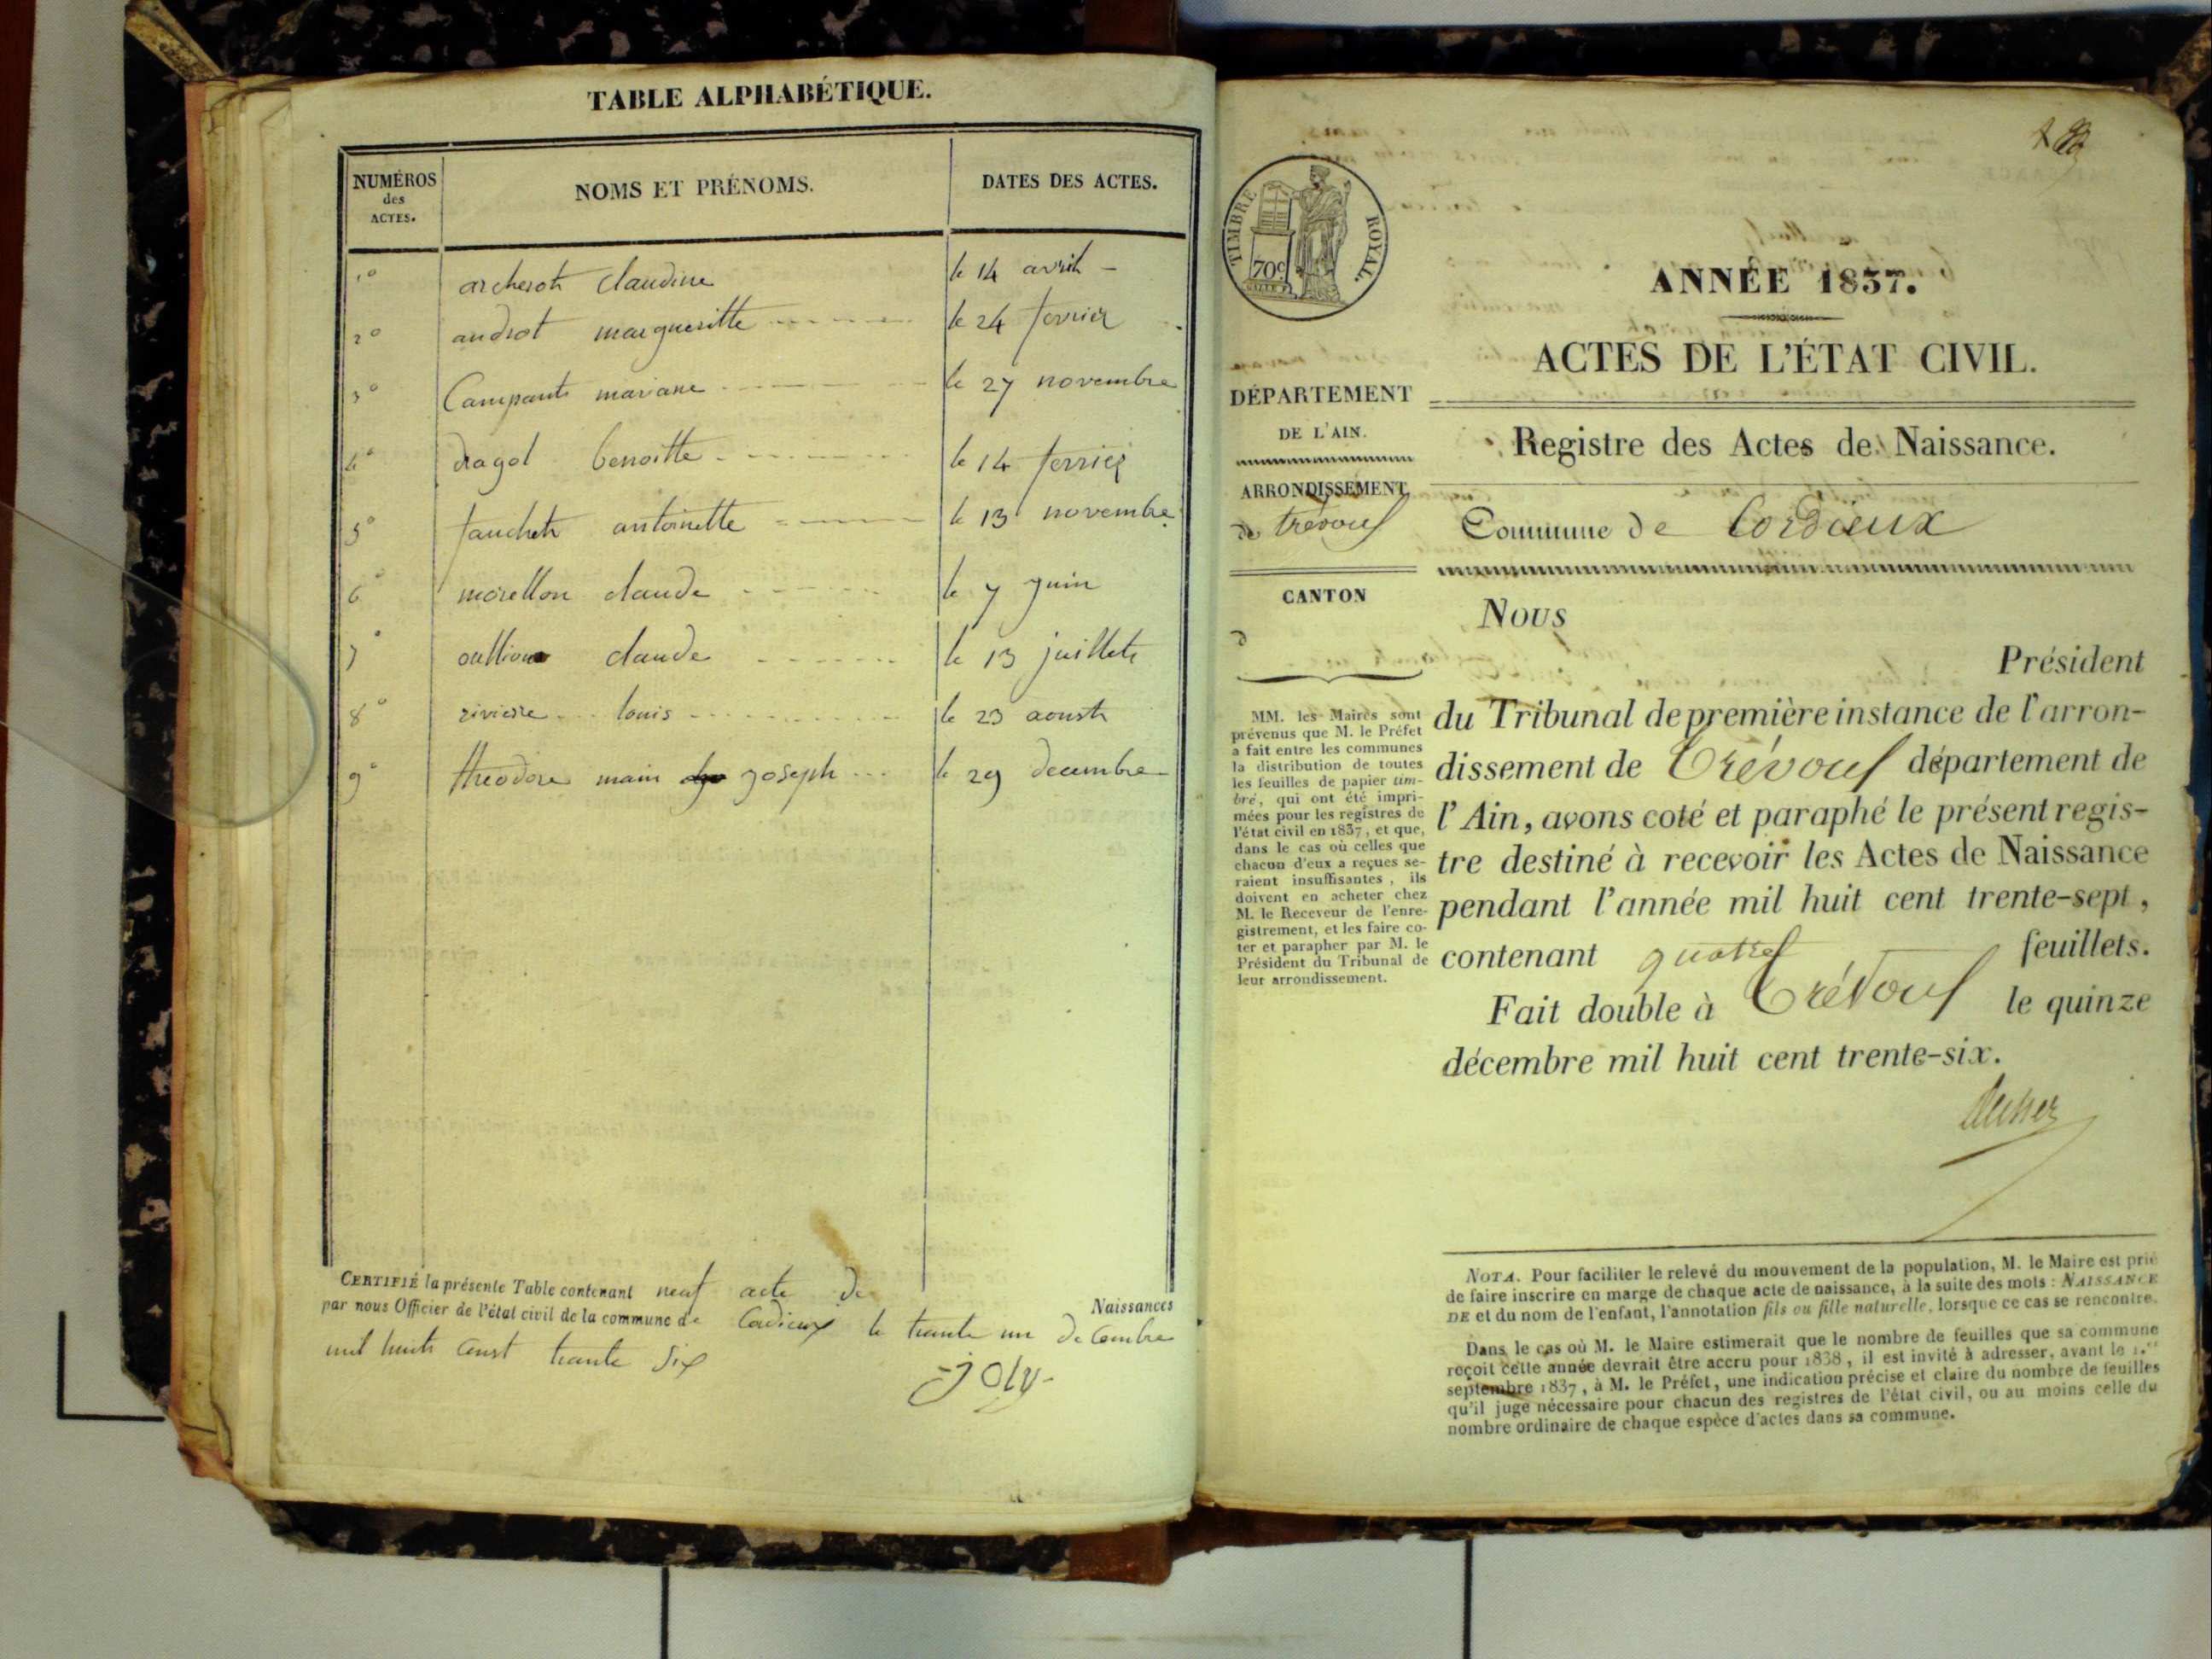 TABLE ALPHABÉTIQUE.
NUMÉROS des ACTES. NOMS ET PRÉNOMS. DATES DES ACTES.
1° archerot claudine le 14 avril -
2° androt margueritte le 24 fevrier
3° Campant mariane le 27 novembre
4° dragol benoitte le 14 fevrier
5° fauchet antoinette le 13 novembre
6° morellon claude le 7 juin
7° claude le 13 juillet
8° riviere louis le 23 aoust
9° theodore main joseph le 29 decembre
CERTIFIÉ la présente Table contenant neuf acte de Naissances
par nous Officier de l'état civil de la commune de Cordieux le trante un decembre
mil huit cent trante Six
-joly-
TIMBRE ROYAL.
70c
ANNÉE 1837.
ACTES DE L'ÉTAT CIVIL.
DÉPARTEMENT
DE L'AIN.
Registre des Actes de Naissance.
ARRONDISSEMENT
de trévoux
Commune de Cordieux
CANTON
d
Nous
Président
du Tribunal de première instance de l'arron-
dissement de Trévoux département de
l'Ain, avons coté et paraphé le présent regis-
tre destiné à recevoir les Actes de Naissance
pendant l'année mil huit cent trente-sept,
contenant quatre feuillets.
Fait double à Trévoux le quinze
décembre mil huit cent trente-six.
MM. les Maires sont
prévenus que M. le Préfet
a fait entre les communes
la distribution de toutes
les feuilles de papier tim-
bré, qui ont été impri-
mées pour les registres de
l'état civil en 1837, et que,
dans le cas où celles que
chacun d'eux a reçues se-
raient insuffisantes, ils
doivent en acheter chez
M. le Receveur de l'enre-
gistrement, et les faire co-
ter et parapher par M. le
Président du Tribunal de
leur arrondissement.
NOTA. Pour faciliter le relevé du mouvement de la population, M. le Maire est prié
de faire inscrire en marge de chaque acte de naissance, à la suite des mots : NAISSANCE
DE et du nom de l'enfant, l'annotation fils ou fille naturelle, lorsque ce cas se rencontre.
Dans le cas où M. le Maire estimerait que le nombre de feuilles que sa commune
reçoit cette année devrait être accru pour 1838, il est invité à adresser, avant le 1.er
septembre 1837, à M. le Préfet, une indication précise et claire du nombre de feuilles
qu'il juge nécessaire pour chacun des registres de l'état civil, ou au moins celle du
nombre ordinaire de chaque espèce d'actes dans sa commune.